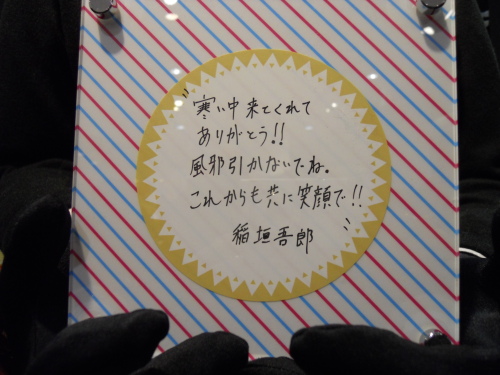 寒い中来てくれて
ありがとう!!
風邪引かないでね。
これからも共に笑顔で!!
稲垣吾郎